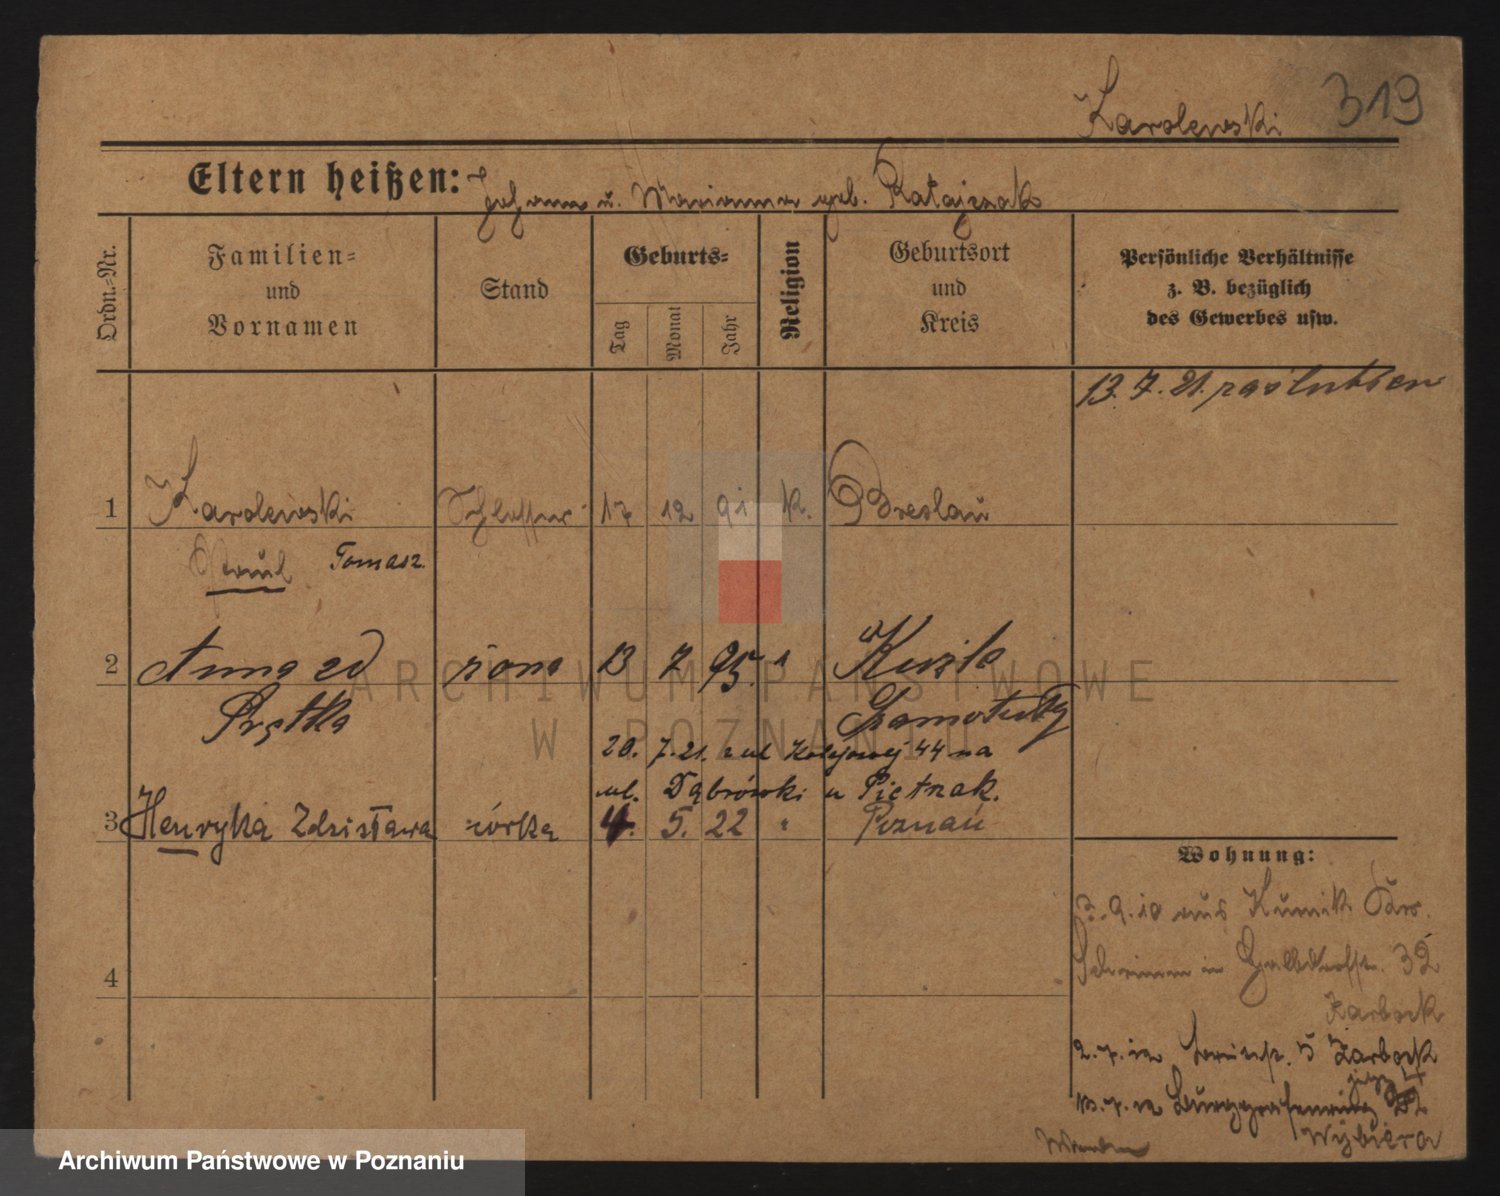 Karolewski 319
Eltern heißen: Johann u. Marianna geb. Ratajczak
Ordn.-Nr. Familien= und Vornamen Stand Geburts= Tag Monat Jahr Religion Geburtsort und Kreis Persönliche Verhältnisse z. B. bezüglich des Gewerbes usw.
13. 7. 21. zaślubien
1 Karolewski Schlosser 17 12 91 k. Breslau
Paul Tomasz.
2 Anna zd żona 13 7 95. "
Prętka Szamotuły
20. 7. 21. z ul Kolejowej 44 na
ul. Dąbrówki u Pietrzak.
3 Henryka Zdzisława córka 4. 5. 22 " Poznań
Wohnung:
3. 9. 10 aus Kurnik Krs.
Schrimm in 32
Zarbock
2. 7. 12 5 Zarbock
4
13. 7. 12 Burggrafenring
Wybiera
ARCHIWUM PAŃSTWOWE
W POZNANIU
Archiwum Państwowe w Poznaniu